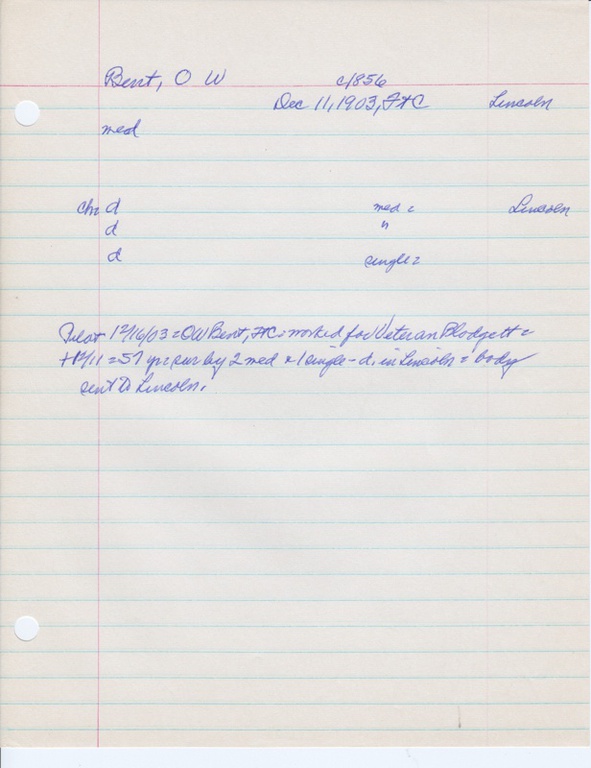 Bent, O W c1856
Dec 11, 1903, FtC Lincoln
med
chr d med = Lincoln
d "
d single =
Pilot 12/16/03 = OW Bent, FtC = worked for Veteran Blodgett =
+12/11 = 57 yr = sur by 2 med & 1 single - d. in Lincoln = body
sent to Lincoln.